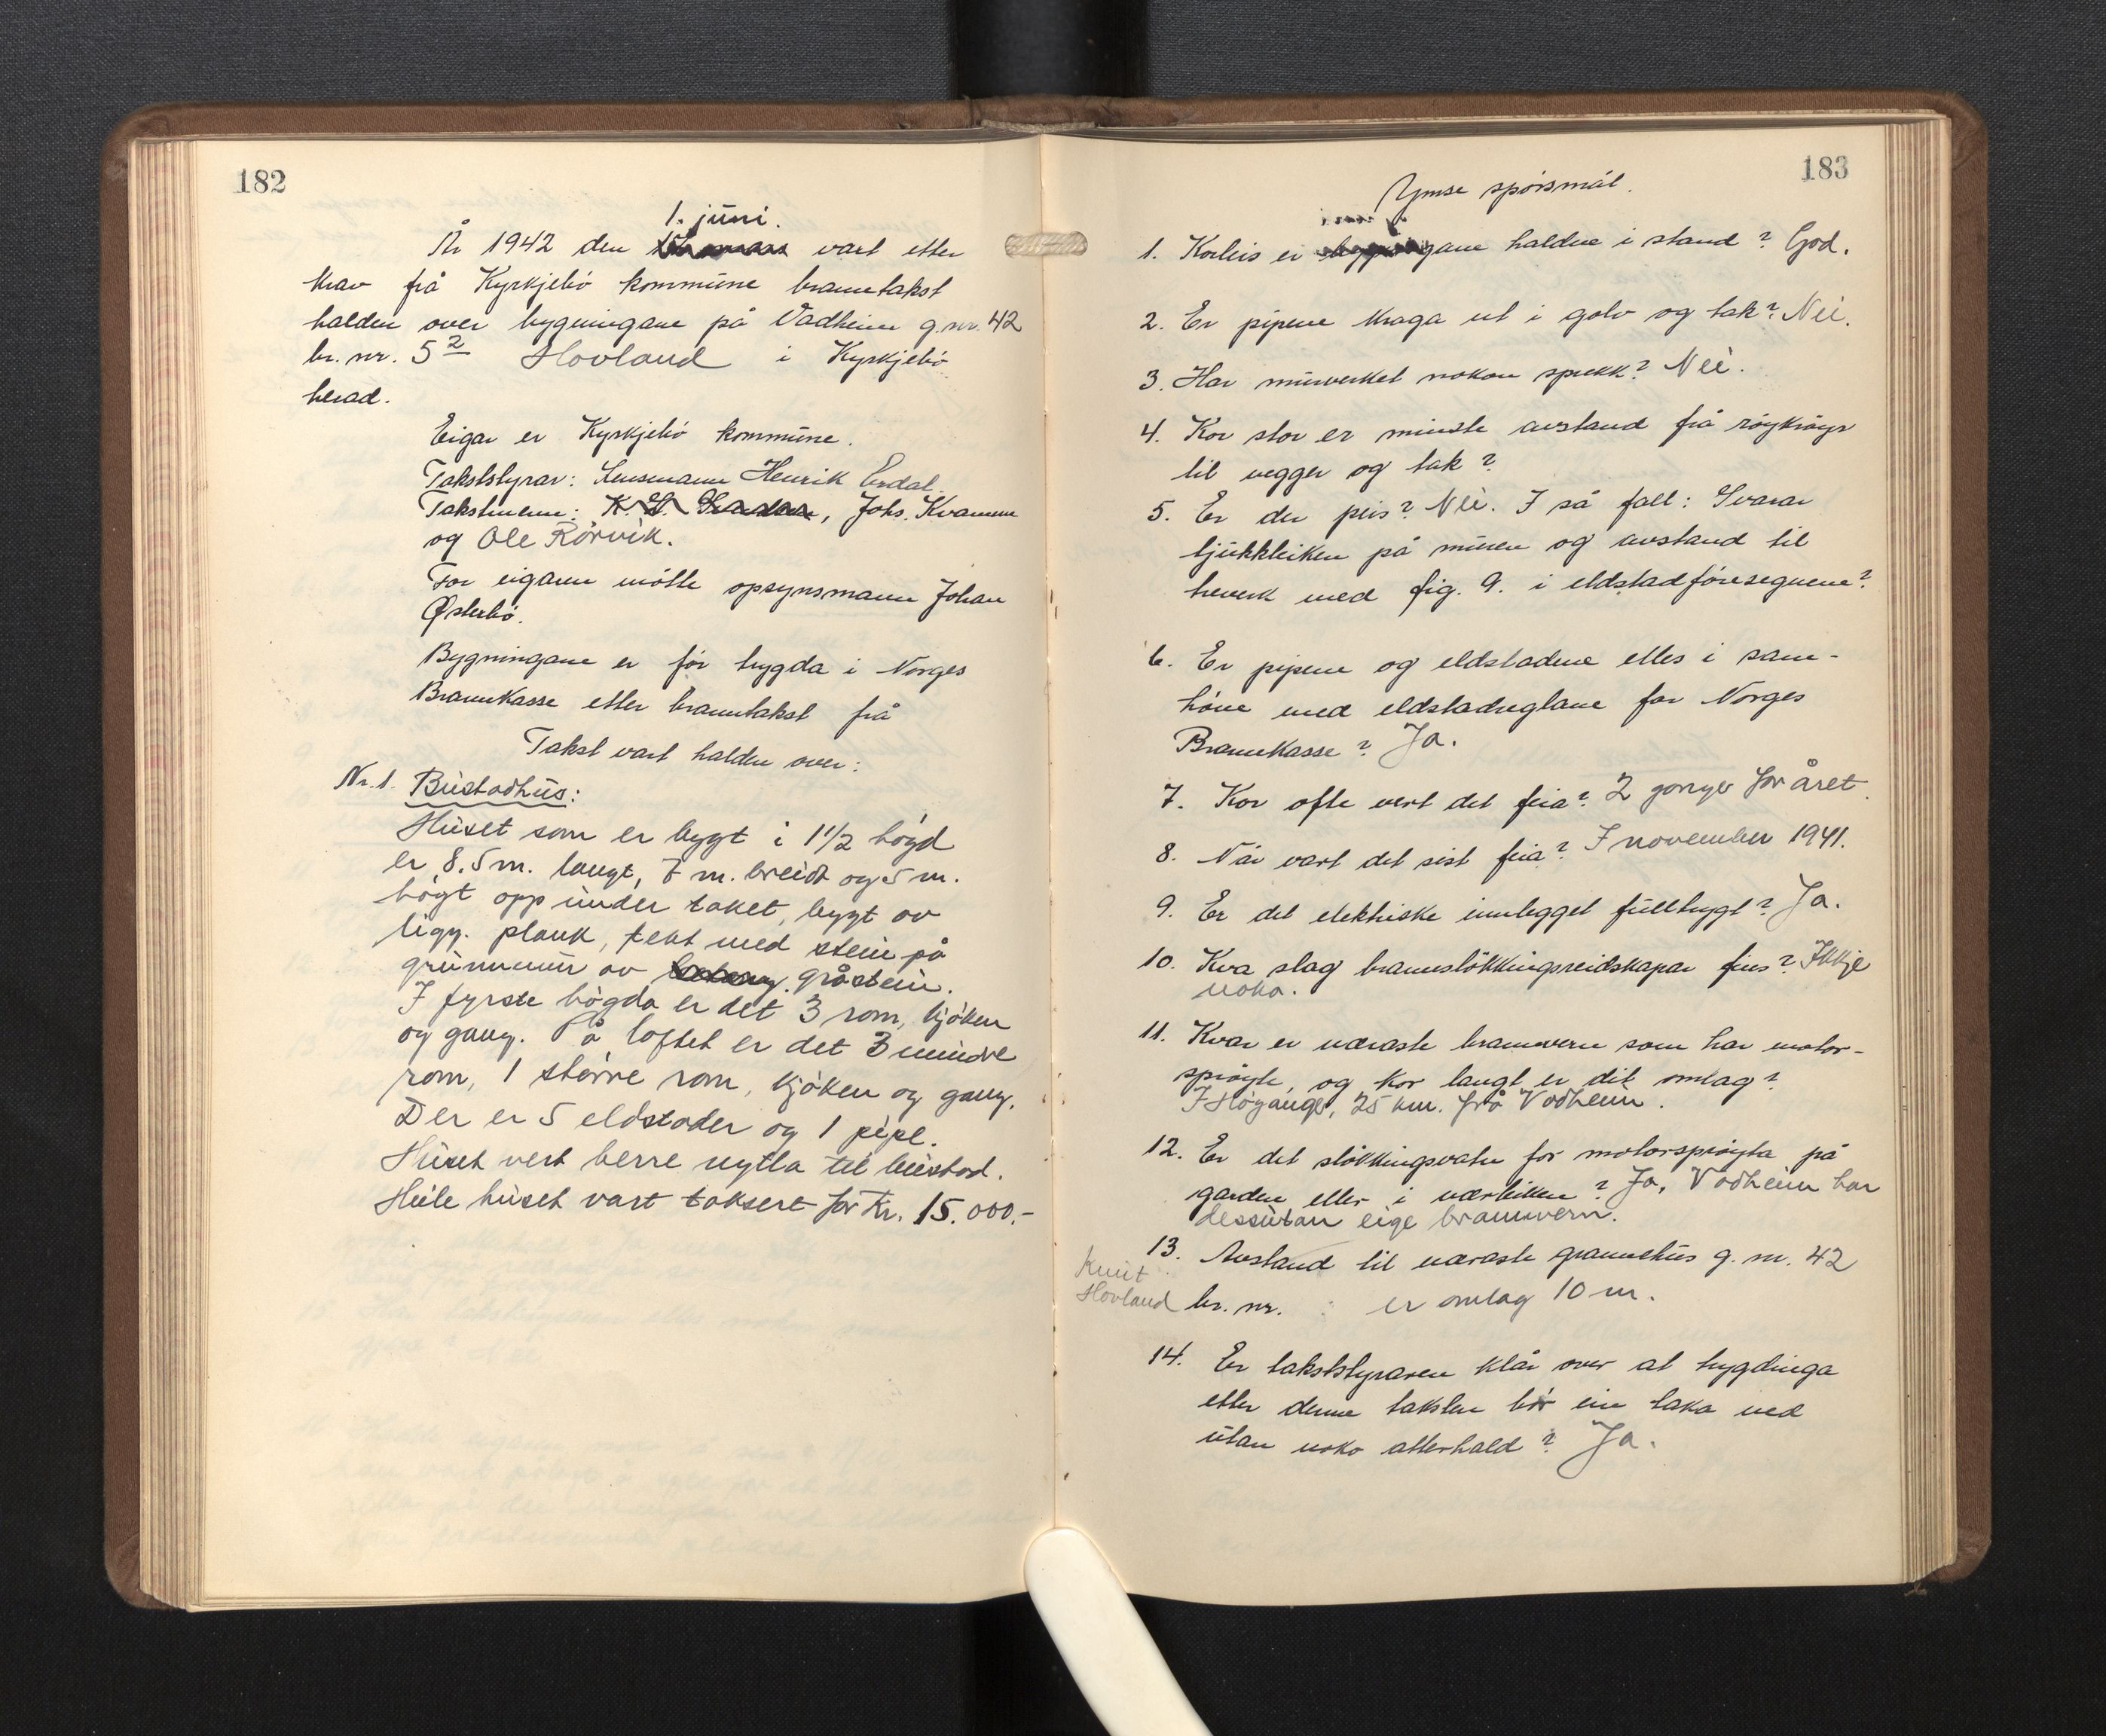 182
1. juni.
År 1942 den vart etter
krav frå Kyrkjebö kommune branntakst
halden over bygningane på Vadheim g.nr. 42
br. nr. 52 Hovland i Kyrkjebö
herad.
Eigar er Kyrkjebö kommune.
Takststyrar: Lensmann Henrik Erdal.
Takstmenn: K. H. , Johs. Kvamme
og Ole Rörvik.
For eigaren mötte opsynsmann Johan
Østerbö.
Bygningane er för trygda i Norges
Brannkasse etter branntakst frå
Takst vart halden over:
Nr. 1. Bustadhus:
Huset som er bygt i 1 1/2 högd
er 8.5 m. langt, 7 m. breidt og 5 m.
högt opp under taket, bygt av
ligg. plank, tekt med stein på
grunnmur av gråstein.
I fyrste högda er det 3 rom, kjöken
og gang. På loftet er det 3 mindre
rom, 1 större rom, kjöken og gang.
Der er 5 eldstader og 1 pipe.
Huset vert berre nytta til bustad.
Heile huset vart taksert for kr. 15.000.-
183
Ymse spörsmål.
1. Korleis er bygningane haldne i stand? God.
2. Er pipene kraga ut i golv og tak? Nei.
3. Har murverket nokon sprekk? Nei.
4. Kor stor er minste avstand frå röykröyr
til vegger og tak?
5. Er der peis? Nei. I så fall: Svarar
tjukkleiken på muren og avstand til
treverk med fig. 9. i eldstadföresegnene?
6. Er pipene og eldstadene elles i sam-
höve med eldstadreglane for Norges
Brannkasse? Ja.
7. Kor ofte vert det feia? 2 gonger for året.
8. Når vart det sist feia? I november 1941.
9. Er det elektriske innlegget fulltrygt? Ja.
10. Kva slag brannslökkingsreidskapar fins? Ikkje
noko.
11. Kvar er næraste brannvern som har motor-
spröyte, og kor langt er dit omlag?
I Höyanger, 25 km. frå Vadheim.
12. Er det slökkingsvatn for motorspröyta på
garden eller i nærleiken? Ja, Vadheim har
dessutan eige brannvern.
13. Avstand til næraste grannehus g. nr. 42
Knut
Hovland br. nr. er omlag 10 m.
14. Er takststyraren klår over at trygdinga
etter denne taksten bör ein taka ved
utan noko atterhald? Ja.